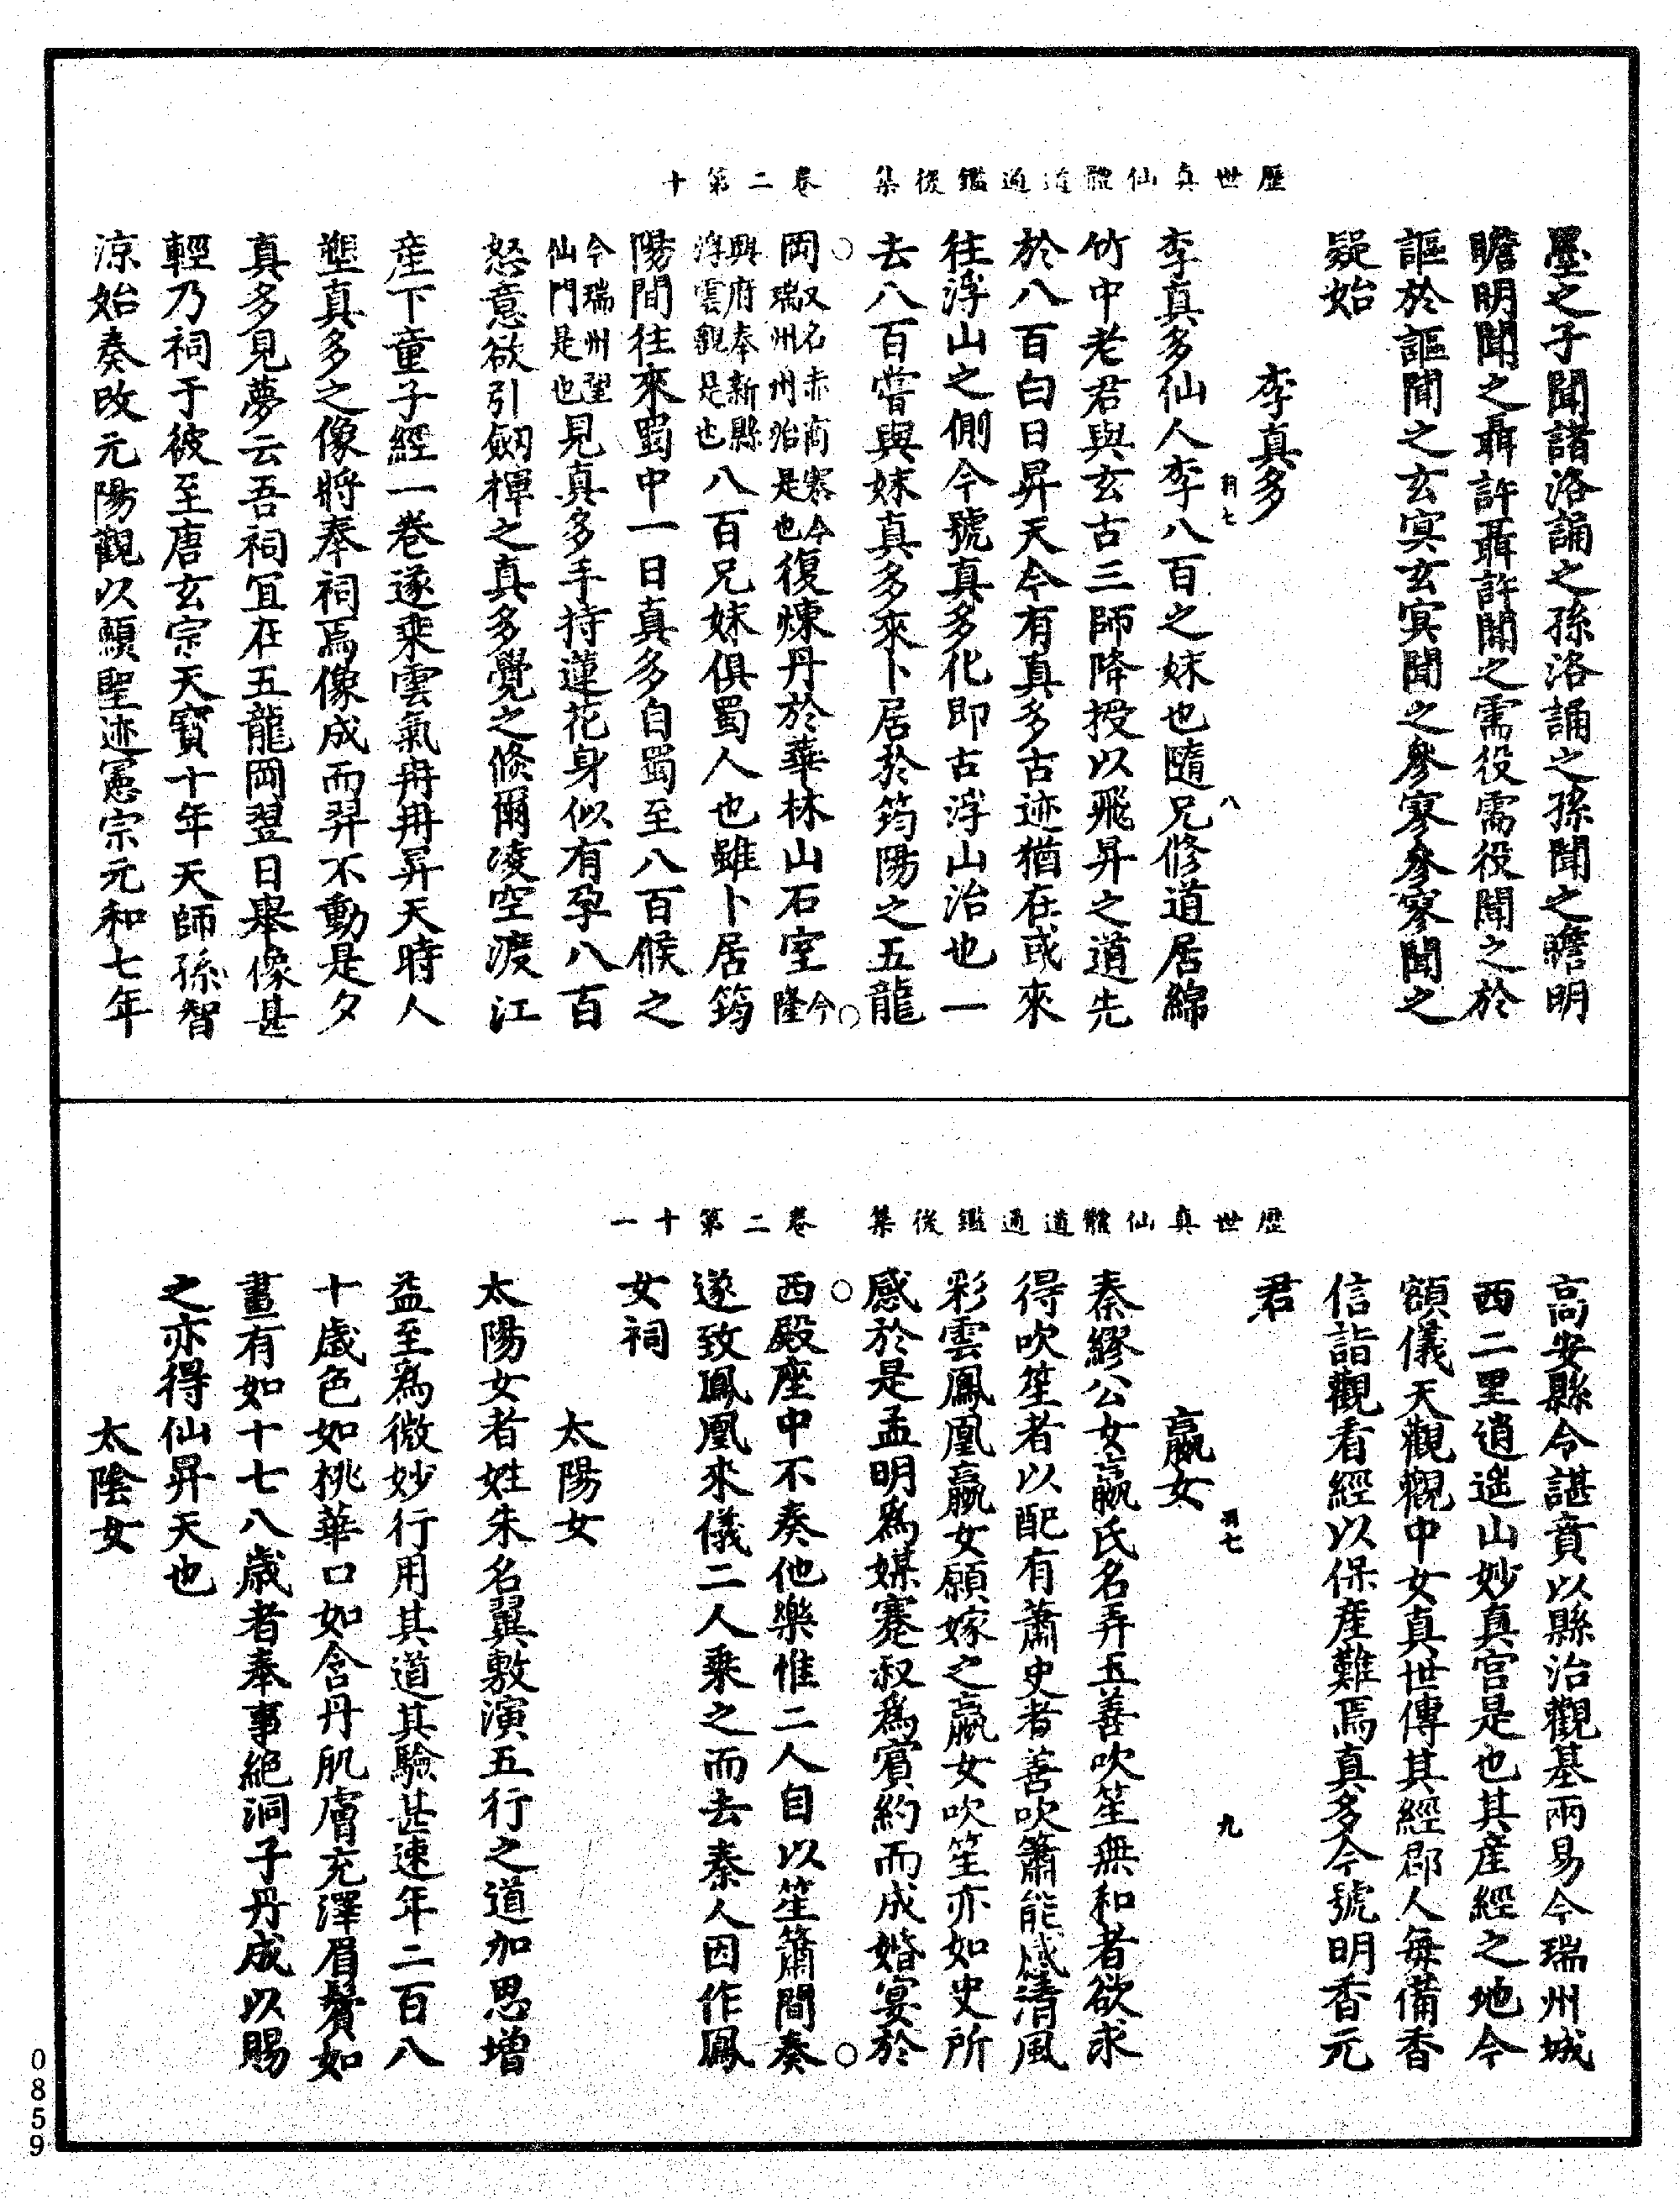 歷世真仙體道通鑑後集　卷二第十
墨之子聞諸洛誦之孫洛誦之孫聞之瞻明
瞻明聞之聶許聶許聞之需役需役聞之於
謳於謳聞之玄冥玄冥聞之參寥參寥聞之
疑始
李真多
羽七
八
李真多仙人李八百之妹也隨兄修道居綿
竹中老君與玄古三師降授以飛昇之道先
於八百白日昇天今有真多古迹猶在或來
往浮山之側今號真多化即古浮山治也一
去八百嘗與妹真多來卜居於筠陽之五龍
岡又名赤商寨今瑞州州治是也復煉丹於華林山石室今隆
興府奉新縣浮雲觀是也八百兄妹俱蜀人也雖卜居筠
陽間往來蜀中一日真多自蜀至八百候之
今瑞州望仙門是也見真多手持蓮花身似有孕八百
怒意欲引劒揮之真多覺之倐爾凌空渡江
產下童子經一卷遂乘雲氣冉冉昇天時人
塑真多之像將奉祠焉像成而羿不動是夕
真多見夢云吾祠宜在五龍岡翌日舉像甚
輕乃祠于彼至唐玄宗天寶十年天師孫智
涼始奏改元陽觀以顯聖迹憲宗元和七年
歷世真仙體道通鑑後集　卷二第十一
高安縣令諶賁以縣治觀基兩易今瑞州城
西二里逍遙山妙真宮是也其產經之地今
額儀天觀觀中女真世傳其經郡人每備香
信詣觀看經以保產難焉真多今號明香元
君
嬴女
羽七
九
秦繆公女嬴氏名弄玉善吹笙無和者欲求
得吹笙者以配有蕭史者善吹簫能感清風
彩雲鳳凰嬴女願嫁之嬴女吹笙亦如史所
感於是孟明為媒蹇叔為賓約而成婚宴於
西殿座中不奏他樂惟二人自以笙簫間奏
遂致鳳凰來儀二人乘之而去秦人因作鳳
女祠
太陽女
太陽女者姓朱名翼敷演五行之道加思增
益至為微妙行用其道其驗甚速年二百八
十歲色如桃華口如含丹肌膚充澤眉鬢如
畫有如十七八歲者奉事絕洞子丹成以賜
之亦得仙昇天也
太陰女
0859